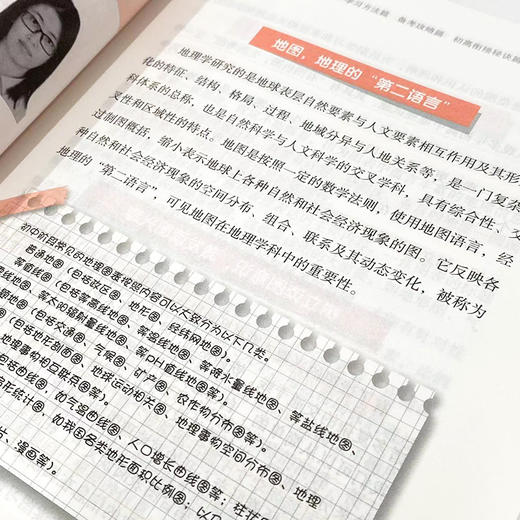 学习方法篇 备考攻略篇 初高衔接秘诀篇
地图，地理的“第二语言”
地理学研究的是地球表层自然要素与人文要素相互作用及其形
化的特征、结构、格局、过程、地域分异与人地关系等，是一门复杂
科体系的总称，也是自然科学与人文科学的交叉学科，具有综合性、交
叉性和区域性的特点。地图是按照一定的数学法则，使用地图语言，经
过制图概括，缩小表示地球上各种自然和社会经济现象的图。它反映各
种自然和社会经济现象的空间分布、组合、联系及其动态变化，被称为
地理的“第二语言”，可见地图在地理学科中的重要性。
初中阶段常见的地理图表按照内容可以大致分为以下几类。
普通地图（包括政区图、地形图、经纬网地图）。
等值线图（包括等高线地图、等降水量线地图、等盐线地图、
线地图、等太阳辐射量线地图、等pH值线地图等）。
题地图（包括交通图、气候图、矿产图、农作物分布图等）。
（包括地形剖面图、地球运动相关图、地理事物空间分布图、地理
地理事物相互联系图等）。
包括曲线图，如气温曲线图、人口增长曲线图等；柱状
形统计图，如我国各类地形面积比例图；以
片、漫画等）。